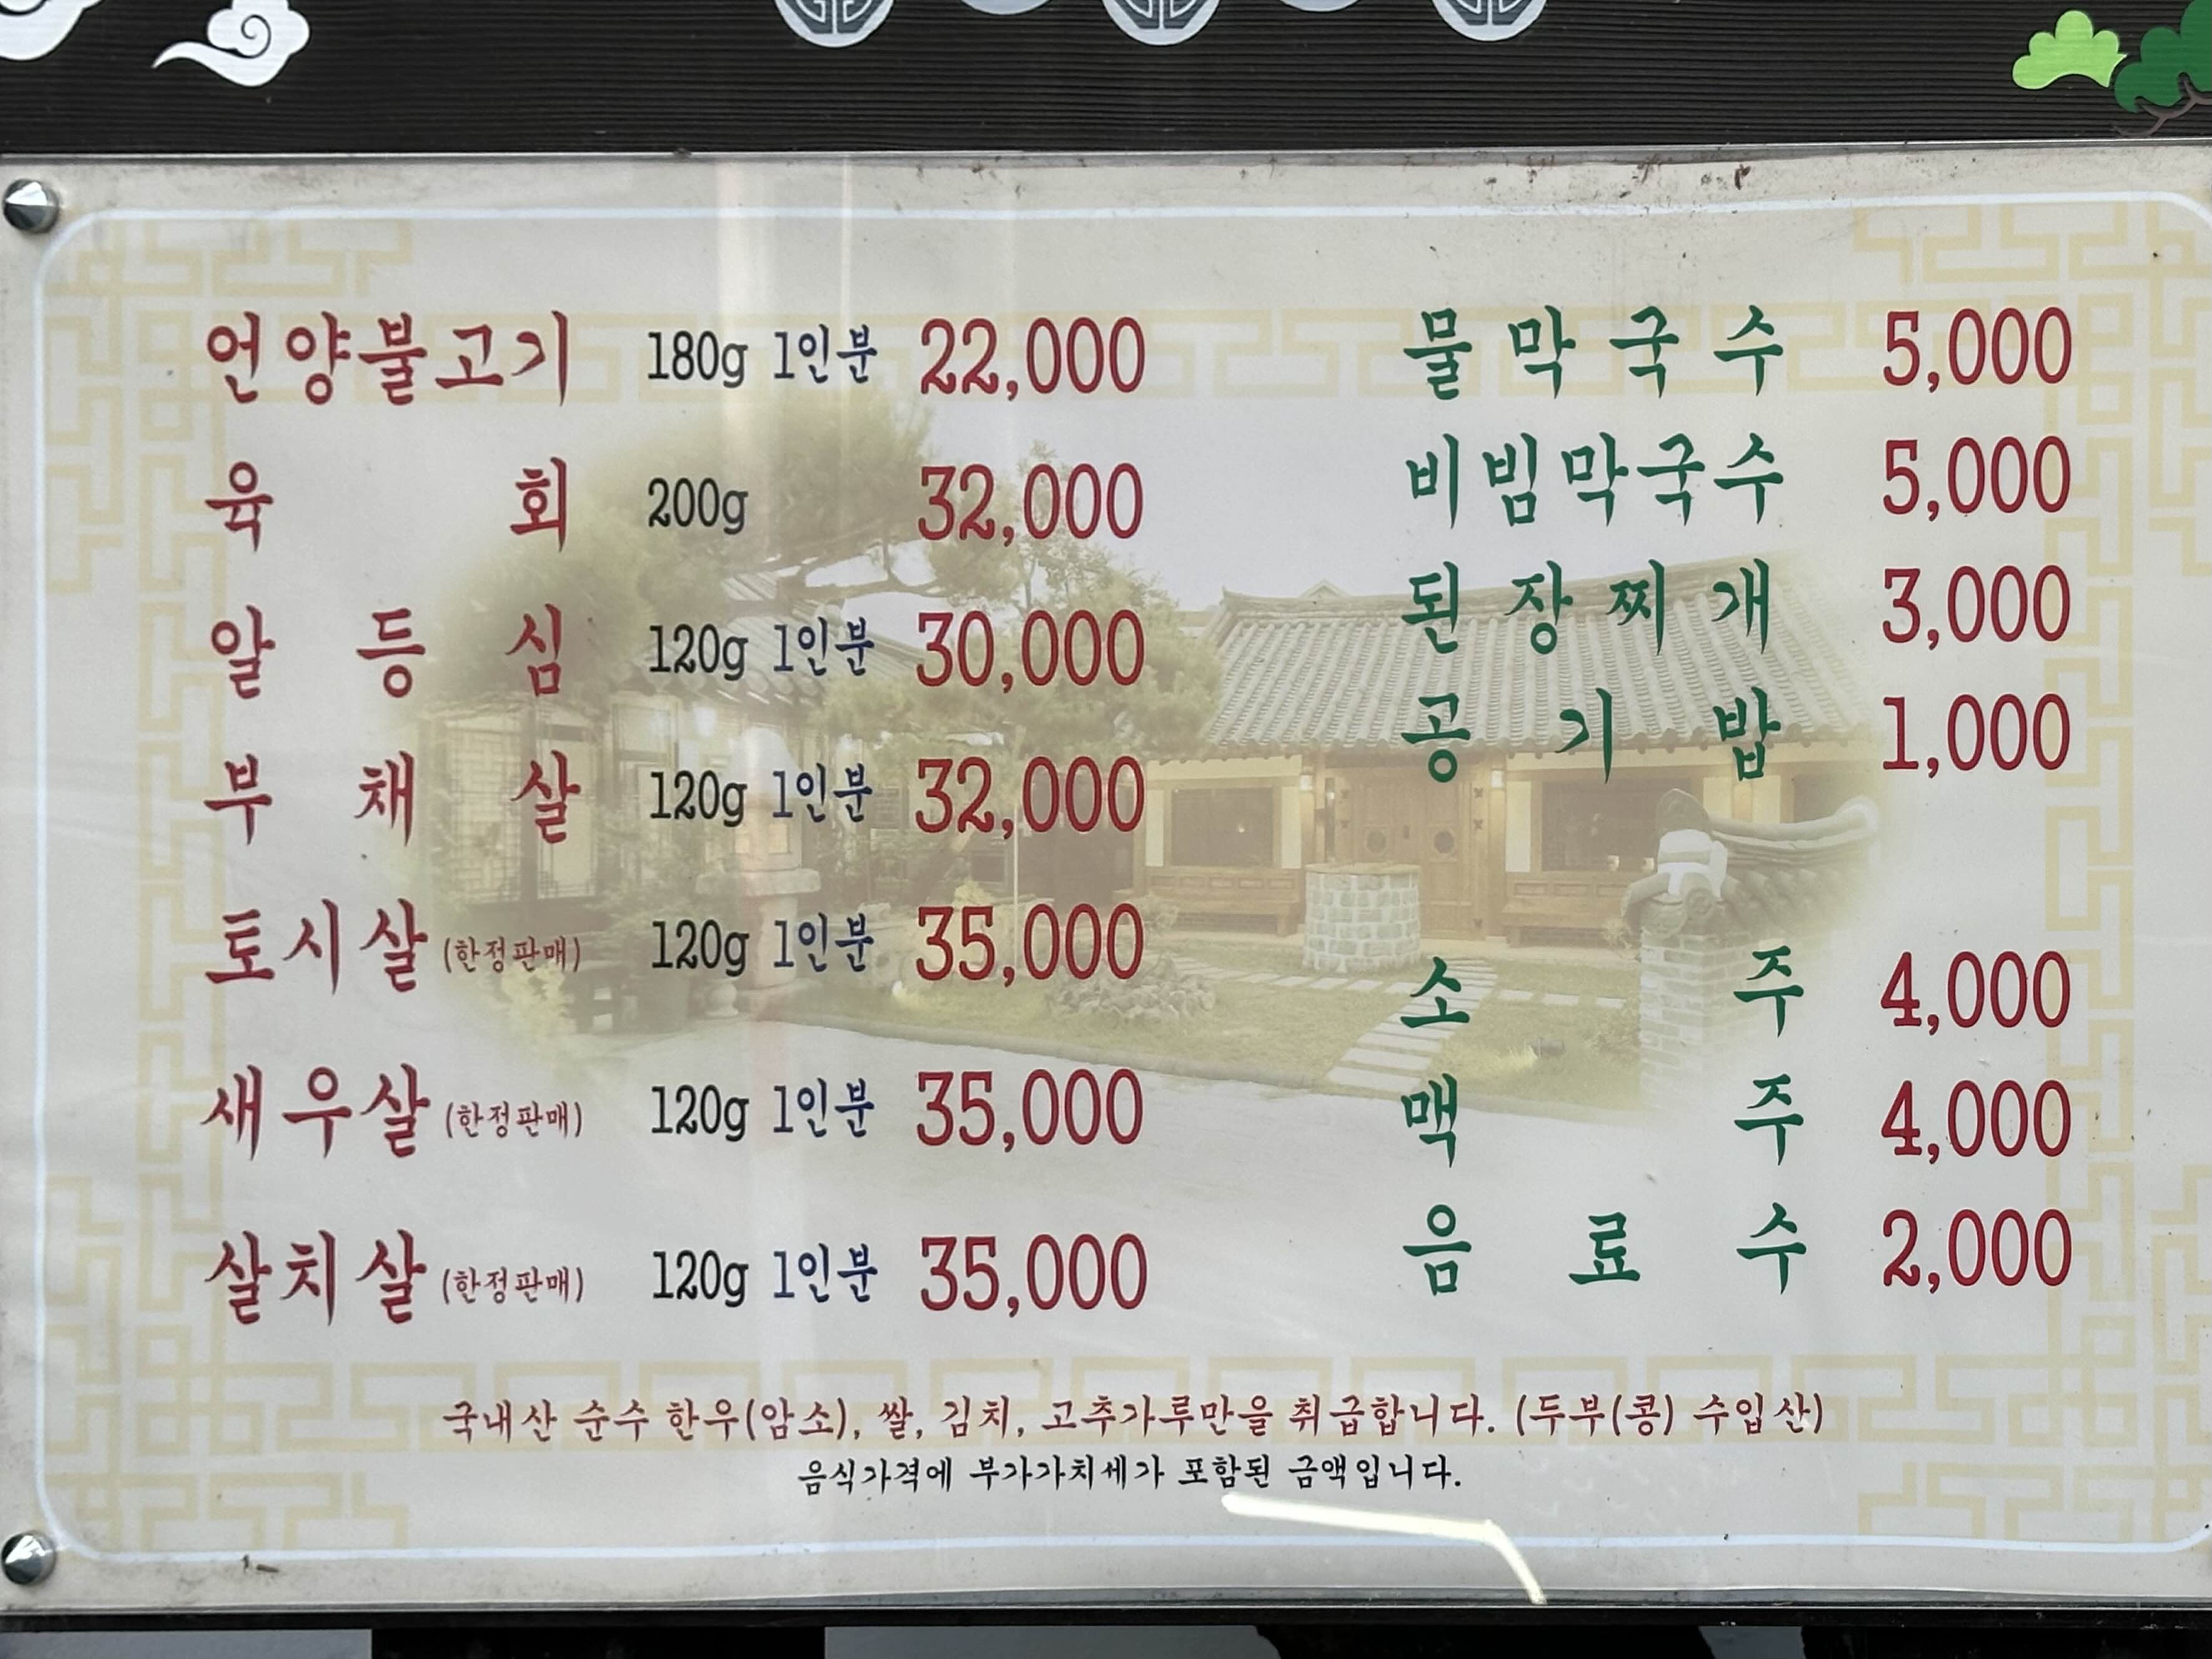 언양불고기 180g 1인분 22,000
육회 200g 32,000
알등심 120g 1인분 30,000
부채살 120g 1인분 32,000
토시살 (한정판매) 120g 1인분 35,000
새우살 (한정판매) 120g 1인분 35,000
살치살 (한정판매) 120g 1인분 35,000
물막국수 5,000
비빔막국수 5,000
된장찌개 3,000
공기밥 1,000
소주 4,000
맥주 4,000
음료수 2,000
국내산 순수 한우(암소), 쌀, 김치, 고추가루만을 취급합니다. (두부(콩) 수입산)
음식가격에 부가가치세가 포함된 금액입니다.